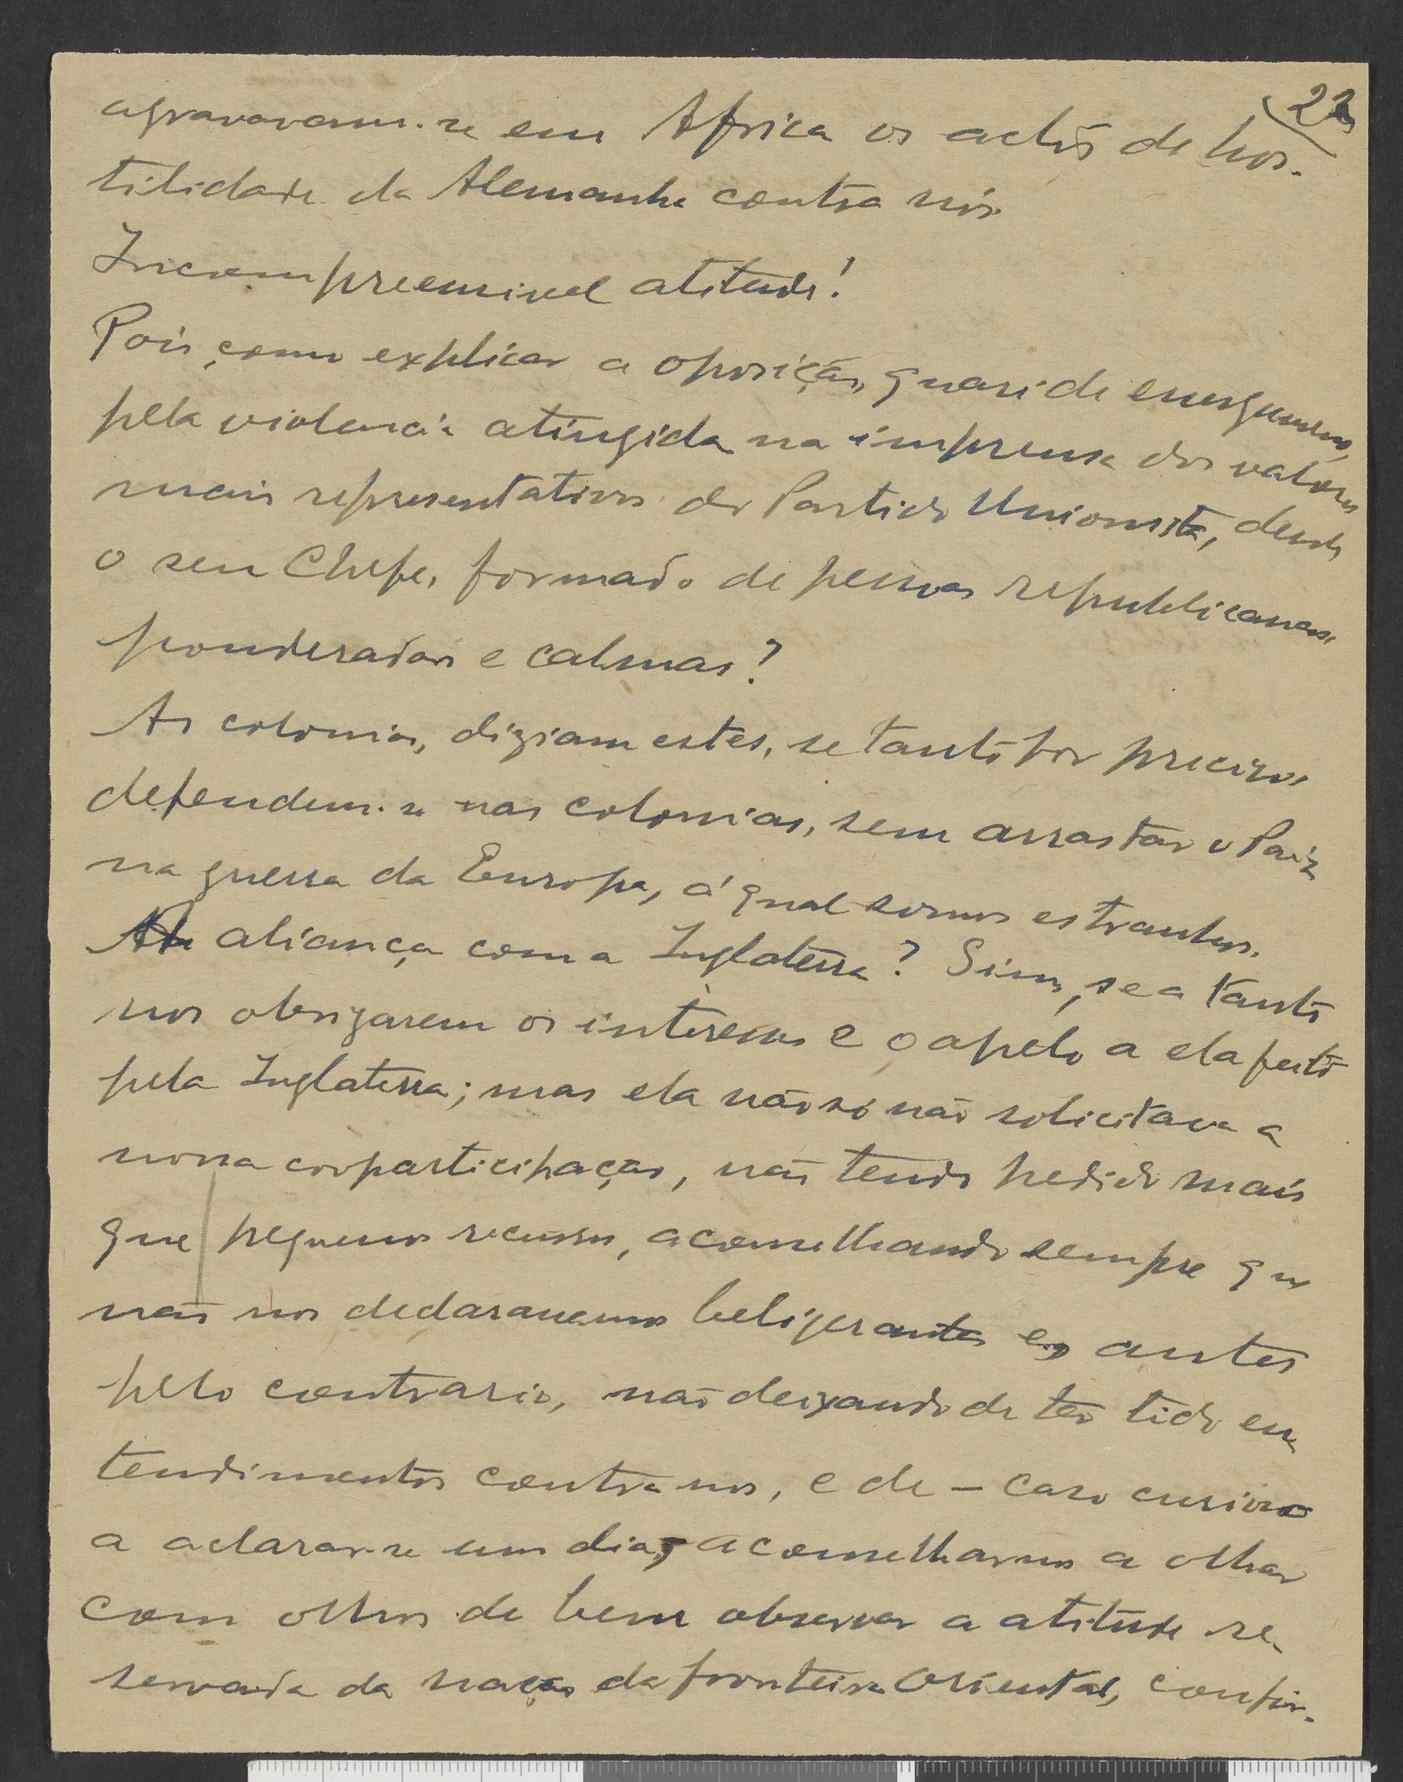 22
agravavam-se em Africa os actos de hos-
tilidade da Alemanha contra nós
Incompreensivel atitude!
Pois como explicar a oposição, quasi de energumenos,
pela violencia atingida na imprensa dos valores
mais representativos do Partido Unionista, desde
o seu Chefe, formado de pessoas republicanas,
ponderadas e calmas?
As colonias, diziam estes, se tanto fôr preciso,
defendem-se nas colonias, sem arrastar o Paiz
na guerra da Europa, á qual somos estranhos.
A aliança com a Inglaterra? Sim, se a tanto
nos obrigarem os interesses e o apelo a ela feito
pela Inglaterra; mas ela não só não solicitava a
nossa coparticipação, não tendo pedido mais
que pequenos recursos, aconselhando sempre que
não nos declarassemos beligerantes e, antes
pelo contrario, não deixando de ter tido en
tendimentos contra nos, e de - caso curioso
a aclarar-se um dia, aconselhar-nos a olhar
com olhos de bem observar a atitude re-
servada da nação da fronteira Oriental, confir-